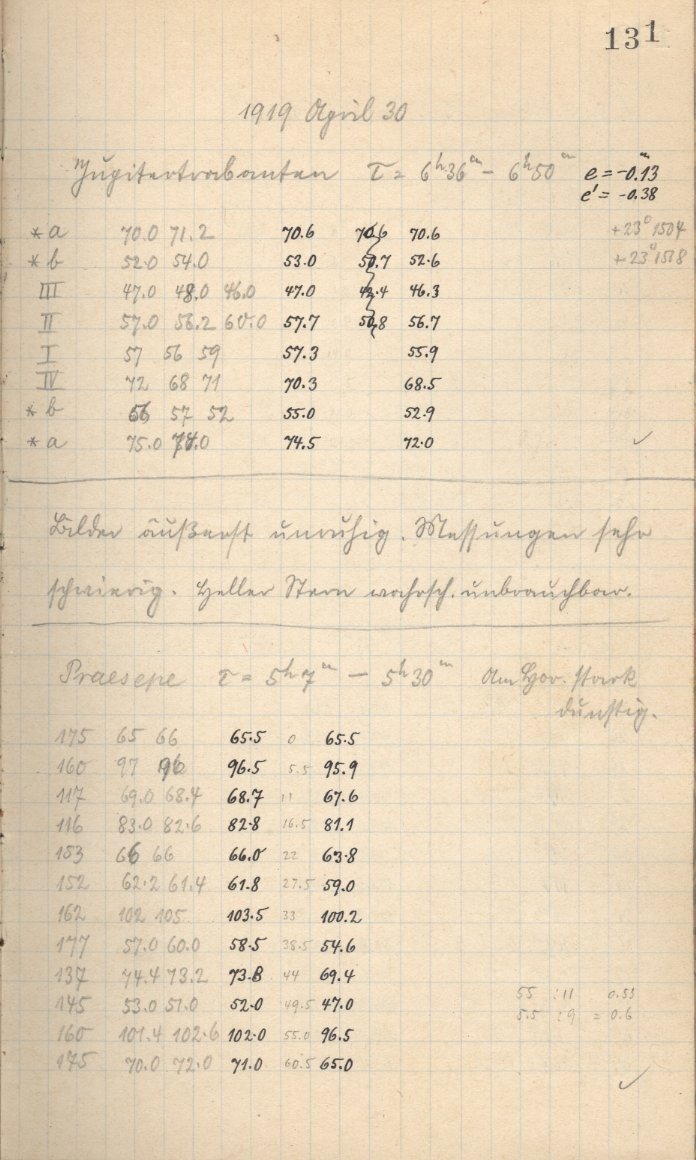 131
1919 April 30
Jupitertrabanten τ = 6ʰ36ᵐ – 6ʰ50ᵐ e = -0.ᵐ13
e' = -0.38
* a 70.0 71.2 70.6 70.6 70.6 +23° 1504
* b 52.0 54.0 53.0 52.6 +23° 1518
III 47.0 48.0 46.0 47.0 46.3
II 57.0 56.2 60.0 57.7 50.8 56.7
I 57 56 59 57.3 55.9
IV 72 68 71 70.3 68.5
* b 56 57 52 55.0 52.9
* a 75.0 74.0 74.5 72.0 ✓
Bilder äußerst unruhig. Messungen sehr
schwierig. Heller Stern wahrsch. unbrauchbar.
Praesepe τ = 5ʰ7ᵐ – 5ʰ30ᵐ Am Hor. stark
dunstig.
175 65 66 65.5 0 65.5
160 97 96 96.5 5.5 95.9
117 69.0 68.4 68.7 11 67.6
116 83.0 82.6 82.8 16.5 81.1
153 66 66 66.0 22 63.8
152 62.2 61.4 61.8 27.5 59.0
162 102 105 103.5 33 100.2
177 57.0 60.0 58.5 38.5 54.6
137 74.4 73.2 73.8 44 69.4
145 53.0 51.0 52.0 49.5 47.0
160 101.4 102.6 102.0 55.0 96.5
175 70.0 72.0 71.0 60.5 65.0
55 : 11 0.55
5.5 : 9 = 0.6
✓